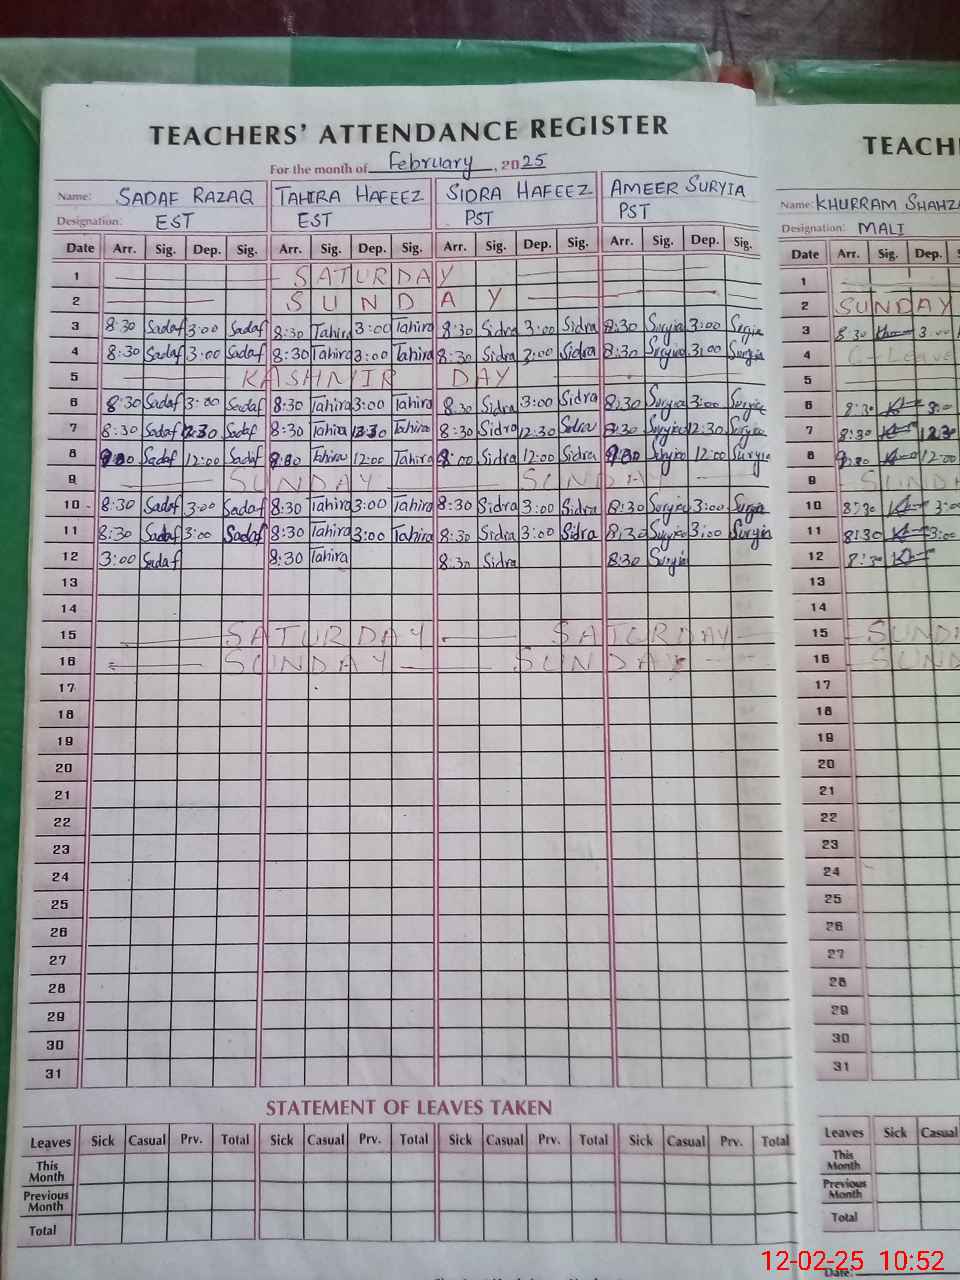 TEACHERS' ATTENDANCE REGISTER
For the month of February, 2025
Name: SADAF RAZAQ TAHIRA HAFEEZ SIDRA HAFEEZ AMEER SURYIA
Designation: EST EST PST PST
Date Arr. Sig. Dep. Sig. Arr. Sig. Dep. Sig. Arr. Sig. Dep. Sig. Arr. Sig. Dep. Sig.
1 SATURDAY
2 SUNDAY
3 8:30 Sadaf 3:00 Sadaf 8:30 Tahira 3:00 Tahira 8:30 Sidra 3:00 Sidra 8:30 Suryia 3:00 Suryia
4 8:30 Sadaf 3:00 Sadaf 8:30 Tahira 3:00 Tahira 8:30 Sidra 3:00 Sidra 8:30 Suryia 3:00 Suryia
5 KASHMIR DAY
6 8:30 Sadaf 3:00 Sadaf 8:30 Tahira 3:00 Tahira 8:30 Sidra 3:00 Sidra 8:30 Suryia 3:00 Suryia
7 8:30 Sadaf 12:30 Sadaf 8:30 Tahira 12:30 Tahira 8:30 Sidra 12:30 Sidra 8:30 Suryia 12:30 Suryia
8 Sadaf 12:00 Sadaf Tahira 12:00 Tahira 8:00 Sidra 12:00 Sidra Suryia 12:00 Suryia
9 SUNDAY SUNDAY
10 8:30 Sadaf 3:00 Sadaf 8:30 Tahira 3:00 Tahira 8:30 Sidra 3:00 Sidra 8:30 Suryia 3:00 Suryia
11 8:30 Sadaf 3:00 Sadaf 8:30 Tahira 3:00 Tahira 8:30 Sidra 3:00 Sidra 8:30 Suryia 3:00 Suryia
12 3:00 Sadaf 8:30 Tahira 8:30 Sidra 8:30 Suryia
13
14
15 SATURDAY SATURDAY
16 SUNDAY SUNDAY
17
18
19
20
21
22
23
24
25
26
27
28
29
30
31
STATEMENT OF LEAVES TAKEN
Leaves Sick Casual Prv. Total Sick Casual Prv. Total Sick Casual Prv. Total Sick Casual Prv. Total
This Month
Previous Month
Total
TEACH
Name: KHURRAM SHAHZA
Designation: MALI
Date Arr. Sig. Dep. S
1
2 SUNDAY
3 8:30 3:00
4 C-Leave
5
6 8:30 3:00
7 8:30 12:30
8 12:00
9 SUNDA
10 8:30 3:00
11 8:30 3:00
12 8:30
13
14
15 SUNDA
16 SUND
17
18
19
20
21
22
23
24
25
26
27
28
29
30
31
Leaves Sick Casual
This Month
Previous Month
Total
Date:
12-02-25 10:52